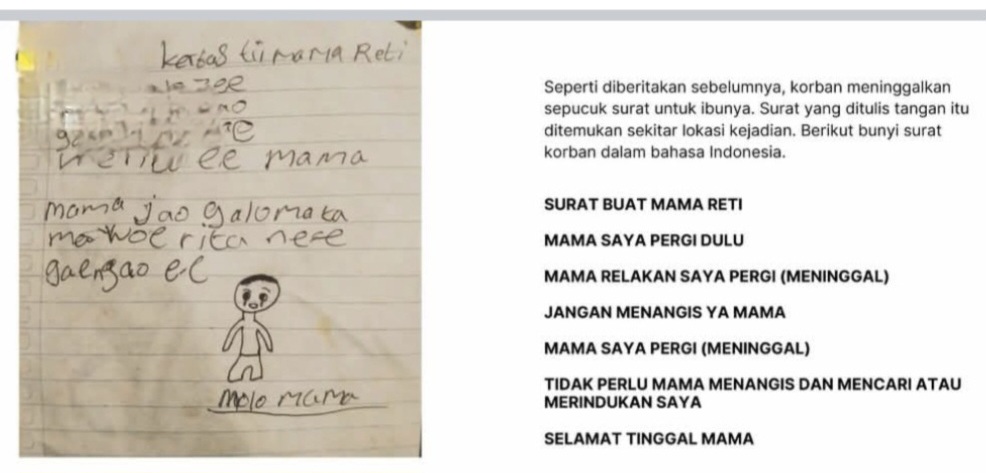 kertas tii mama Reti
ee mama
mama jao galo mata
mae woe rita nee
gaengao ee
molo mama
Seperti diberitakan sebelumnya, korban meninggalkan
sepucuk surat untuk ibunya. Surat yang ditulis tangan itu
ditemukan sekitar lokasi kejadian. Berikut bunyi surat
korban dalam bahasa Indonesia.
SURAT BUAT MAMA RETI
MAMA SAYA PERGI DULU
MAMA RELAKAN SAYA PERGI (MENINGGAL)
JANGAN MENANGIS YA MAMA
MAMA SAYA PERGI (MENINGGAL)
TIDAK PERLU MAMA MENANGIS DAN MENCARI ATAU
MERINDUKAN SAYA
SELAMAT TINGGAL MAMA